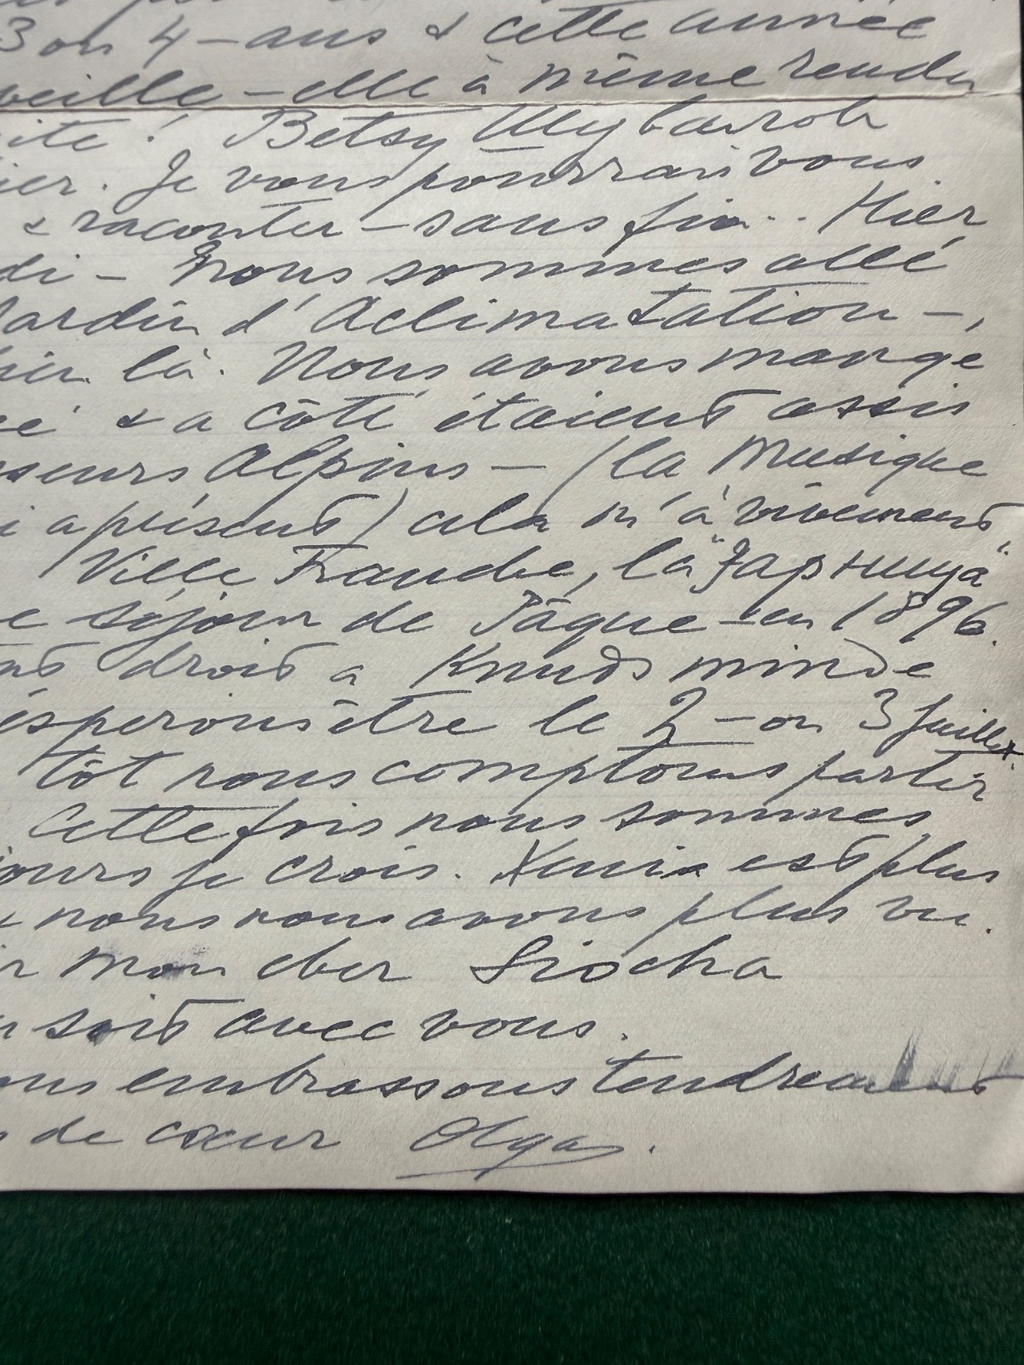 3 ou 4 – ans & cette année
veille – elle à même rendu
ite ! Betsy
ier. Je vous pourrai vous
& raconter – sans fin.. Hier
di – Nous sommes allé
Jardin d'Aclimatation –,
là. Nous avons mangé
é & a côté étaient assis
sseurs Alpins – (la Musique
i a présent) cela m'à vivement
Ville Franche, la "Зарница"
e séjour de Pâque en 1896.
droit a Knudsminde
ésperons être le 2 – ou 3 Juillet.
tôt nous comptons partir
Cette fois nous sommes
jours je crois. Xenia est plus
nous nous avons plus vu.
r mon cher Siocha
soit avec vous.
ous embrassons tendrement
de cœur Olga.